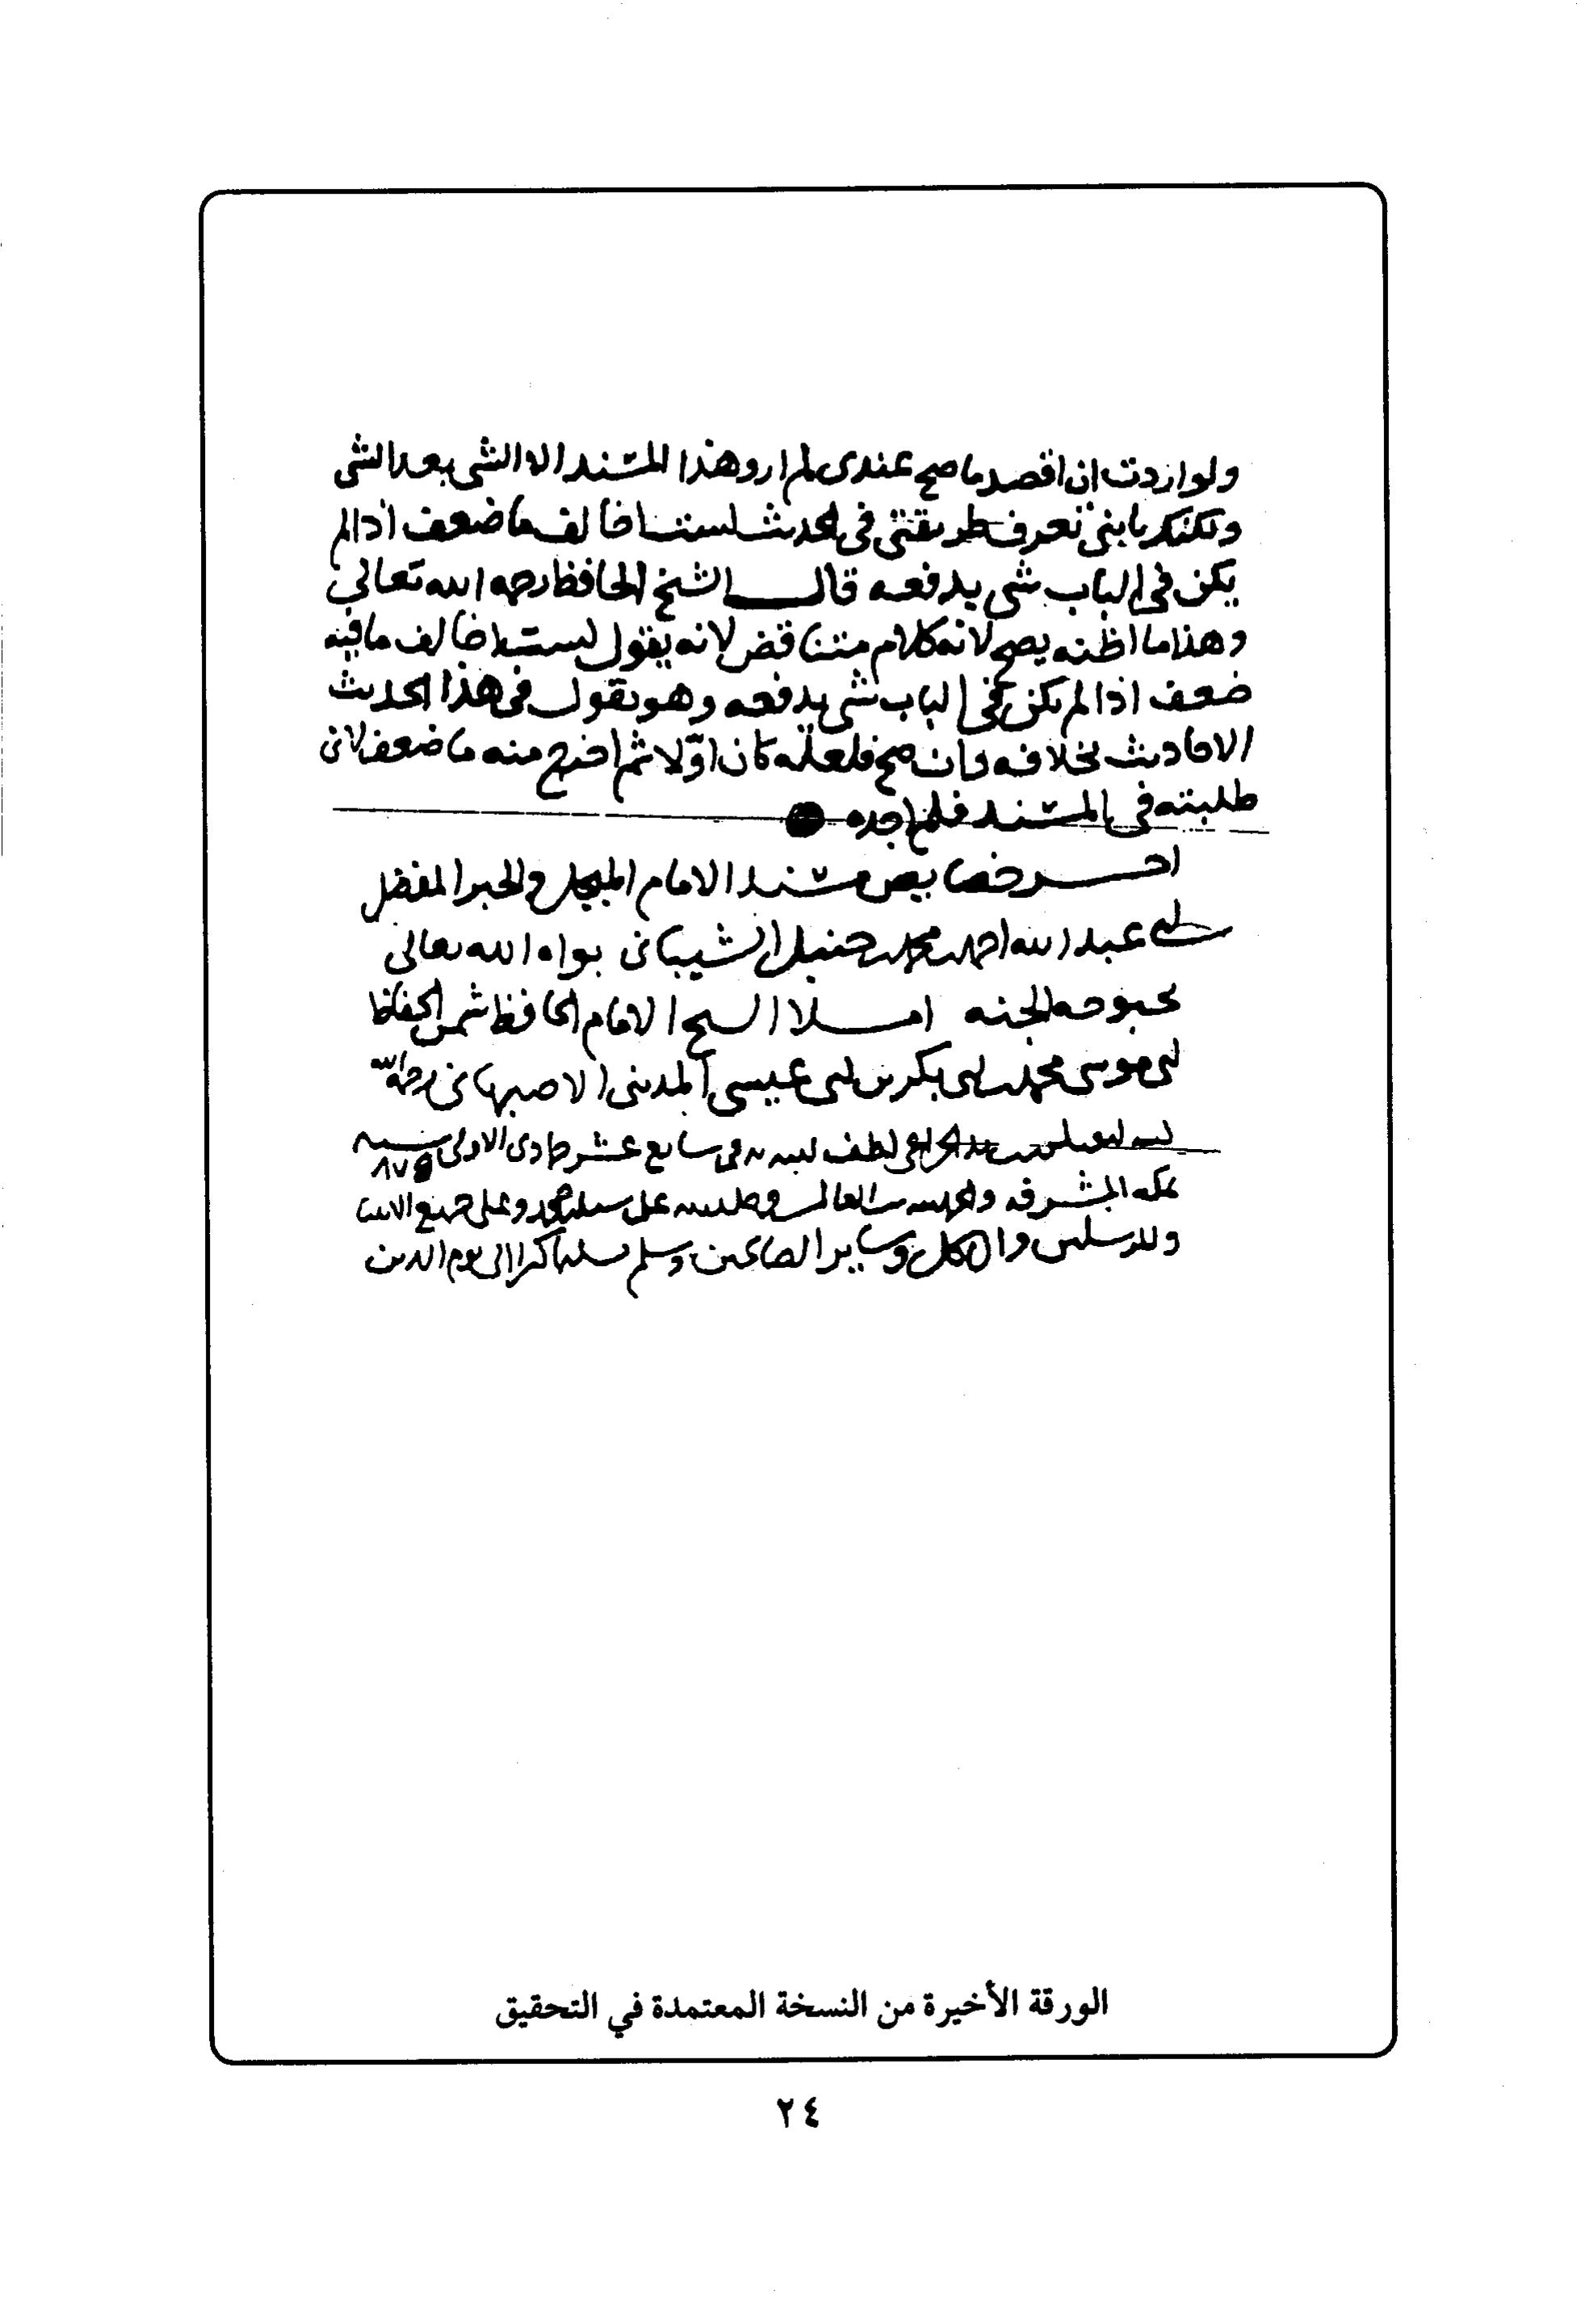 ولو اردت ان اقصد ما صح عندي لم ارو هذا المسند الا الشي بعد الشي
ولكنك يا بني تعرف طريقتي في الحديث لست اخالف ما ضعف اذا لم
يكن في الباب شي يدفعه قال الشيخ الحافظ رحمه الله تعالى
وهذا ما اظنه يصح لانه كلام متناقض لانه يقول لست اخالف ما فيه
ضعف اذا لم يكن في الباب شي يدفعه وهو يقول في هذا الحديث
الاحاديث بخلافه وان صح فلعله كان اولا ثم اخرج منه ما ضعف لاني
طلبته في المسند فلم اجده
اخر خصايص مسند الامام المبجل والحبر المفضل
ابي عبد الله احمد بن محمد بن حنبل الشيباني بواه الله تعالى
بحبوحه الجنه املا الشيخ الامام الحافظ شمس الحفاظ
ابي موسى محمد بن ابي بكر بن ابي عيسى المديني الاصبهاني رحمه الله
لطف في سابع عشر جمادى الاولى سنه ٨٧٥
بمكه المشرفه والحمد لله رب العالمين وصلى الله على سيدنا محمد وعلى جميع الانبيا
والمرسلين وال كل وساير الصالحين وسلم تسليما كثيرا الى يوم الدين
الورقة الأخيرة من النسخة المعتمدة في التحقيق
٢٤